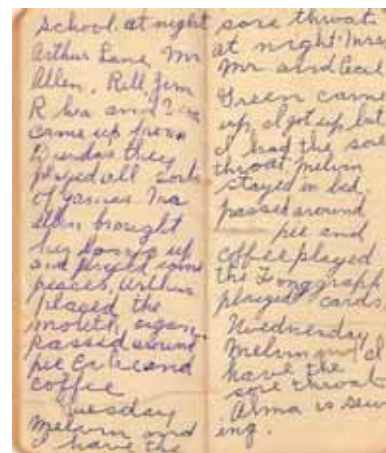 school. at night
Arthur Lane, Mr
Allen, Rell, Jim
R Ira and
came up from
Dundas they
played all sorts
of games. Ira
Allen brought
her banjo up
and played some
pieces, Arthur
played the
mouth organ.
Passed around
pie cake and
coffee
Tuesday
Melvin and
I have the
sore throat
at night Mrs
Mr and Cecil
Green came
up, I got up but
I had the sore
throat. Melvin
stayed in bed.
passed around
pie and
coffee played
the Fonggrapf
played cards
Wednesday
Melvin and I
have the
sore throat
Alma is sew
ing.